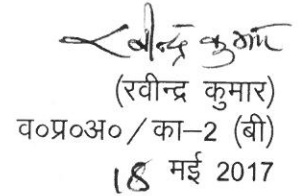 रवीन्द्र कुमार
(रवीन्द्र कुमार)
व०प्र०अ०/का–2 (बी)
18 मई 2017